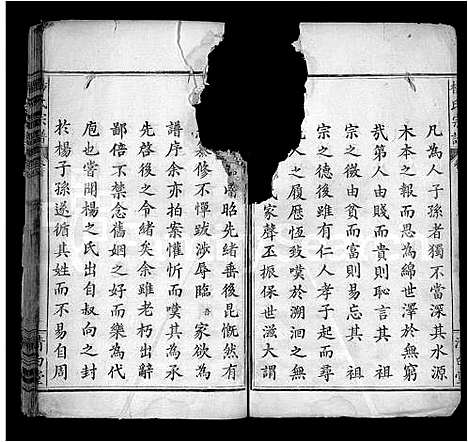 凡為人子孫者獨不當深其水源
木本之報而思為綿世澤於無窮
哉第人由賤而貴則恥言其祖
宗之微由貧而富則易忘其祖
宗之德後雖有仁人孝子而於
人之履歷恆致嘆於溯洄之
家聲丕振保世滋大謂
昭先緒垂後昆慨然有
慕修不憚跋涉辱臨吾家欲為
譜序余亦拍案懽忻而嘆其為承
先啓後之令緒矣余雖老朽出辭
鄙倍不禁念舊姻之好而樂為代
庖也嘗聞楊之氏出自叔向之封
於楊子孫遂循其姓而不易自周
楊氏宗譜
清白堂